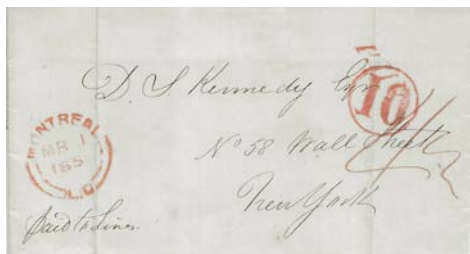 D. S Kennedy Esqr
10
No 58 Wall Street
New York
MONTREAL
MR 1
185
L.C
Paid to Lines